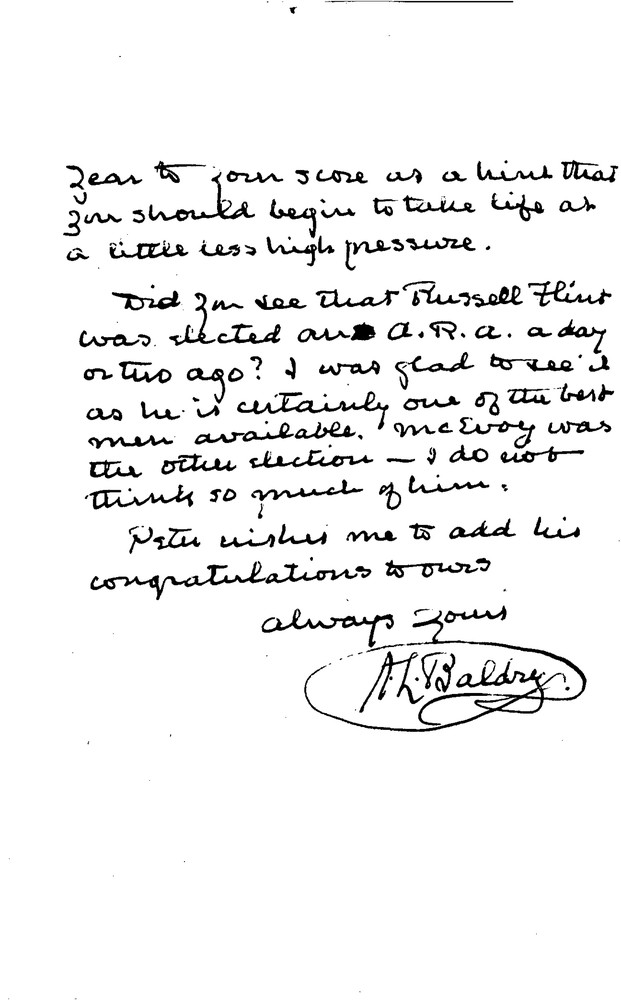 year to your score as a hint that
you should begin to take life at
a little less high pressure.
Did you see that Russell Flint
was elected an A.R.A. a day
or two ago? I was glad to see it
as he is certainly one of the best
men available. McEvoy was
the other election — I do not
think so much of him.
Peter wishes me to add his
congratulations to ours
always yours
A.L. Baldry.